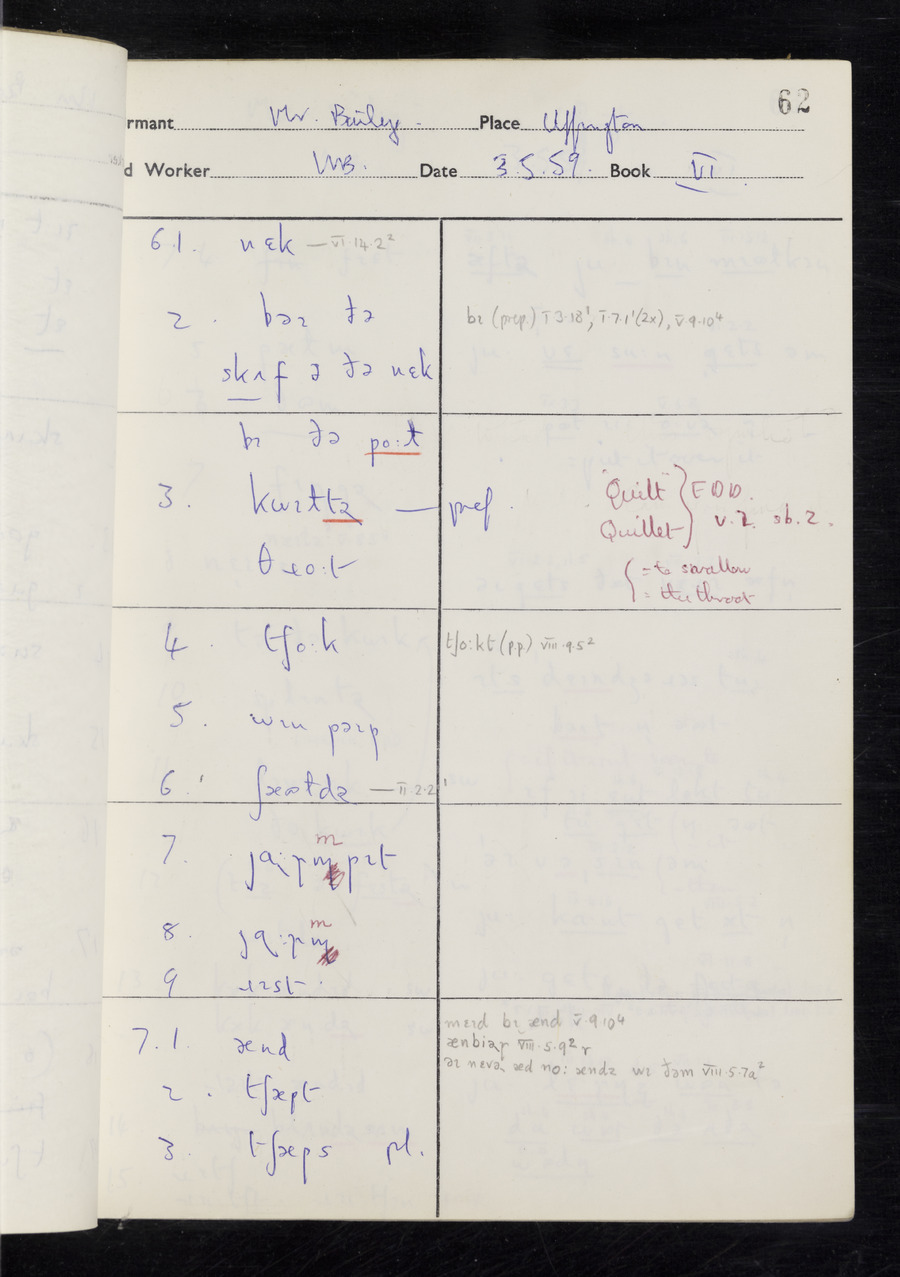 62
rmant Mr. Bailey. Place Uffington
d Worker Date 3.5.59. Book VI
6.1. nɛk — VI.14.2²
2. bəɪ ðə bɪ (prep.) I.3.18¹, I.7.1¹(2x), V.9.10⁴
skrʌf ə ðə nɛk
bɪ ðə po:ɫt
3. kwɪɫtɪz — pref. "Quilt" } E.D.D.
Quillet } v.2. sb.2.
θɹo:t { = to swallow
= the throat
4. tʃo:k tʃo:kt (p.p.) VIII.9.5²
5. wɪn pəɪp
6. ʃæʊɫdəz — II.2.2¹
7. ɑ:ɹm pɪt
m
8. ɑ:ɹm
m
9. ɹɪst.
7.1. ænd mɛɪd bɪ ænd V.9.10⁴
ænbiəɹ VIII.5.9² r
əɪ nevəɹ æd no: ændz wɪ ðəm VIII.5.7a²
2. tʃæpt
3. tʃæps pl.